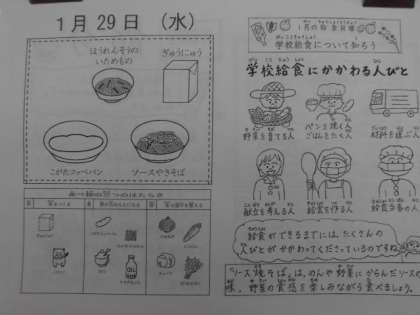 1月29日（水）
ほうれんそうの
いためもの
ぎゅうにゅう
こがたコッペパン
ソースやきそば
1月の給食目標
学校給食について知ろう
学校給食にかかわる人びと
野菜を育てる人
パンを焼く人
ごはんをたく人
材料を運ぶ人
献立を考える人
給食を作る人
給食ができるまでには、たくさんの
人びとがかかわってくださっているのですね
「ソース焼そば」は、めんや野菜にからんだソースの
味、野菜の食感を楽しみながら食べましょう。